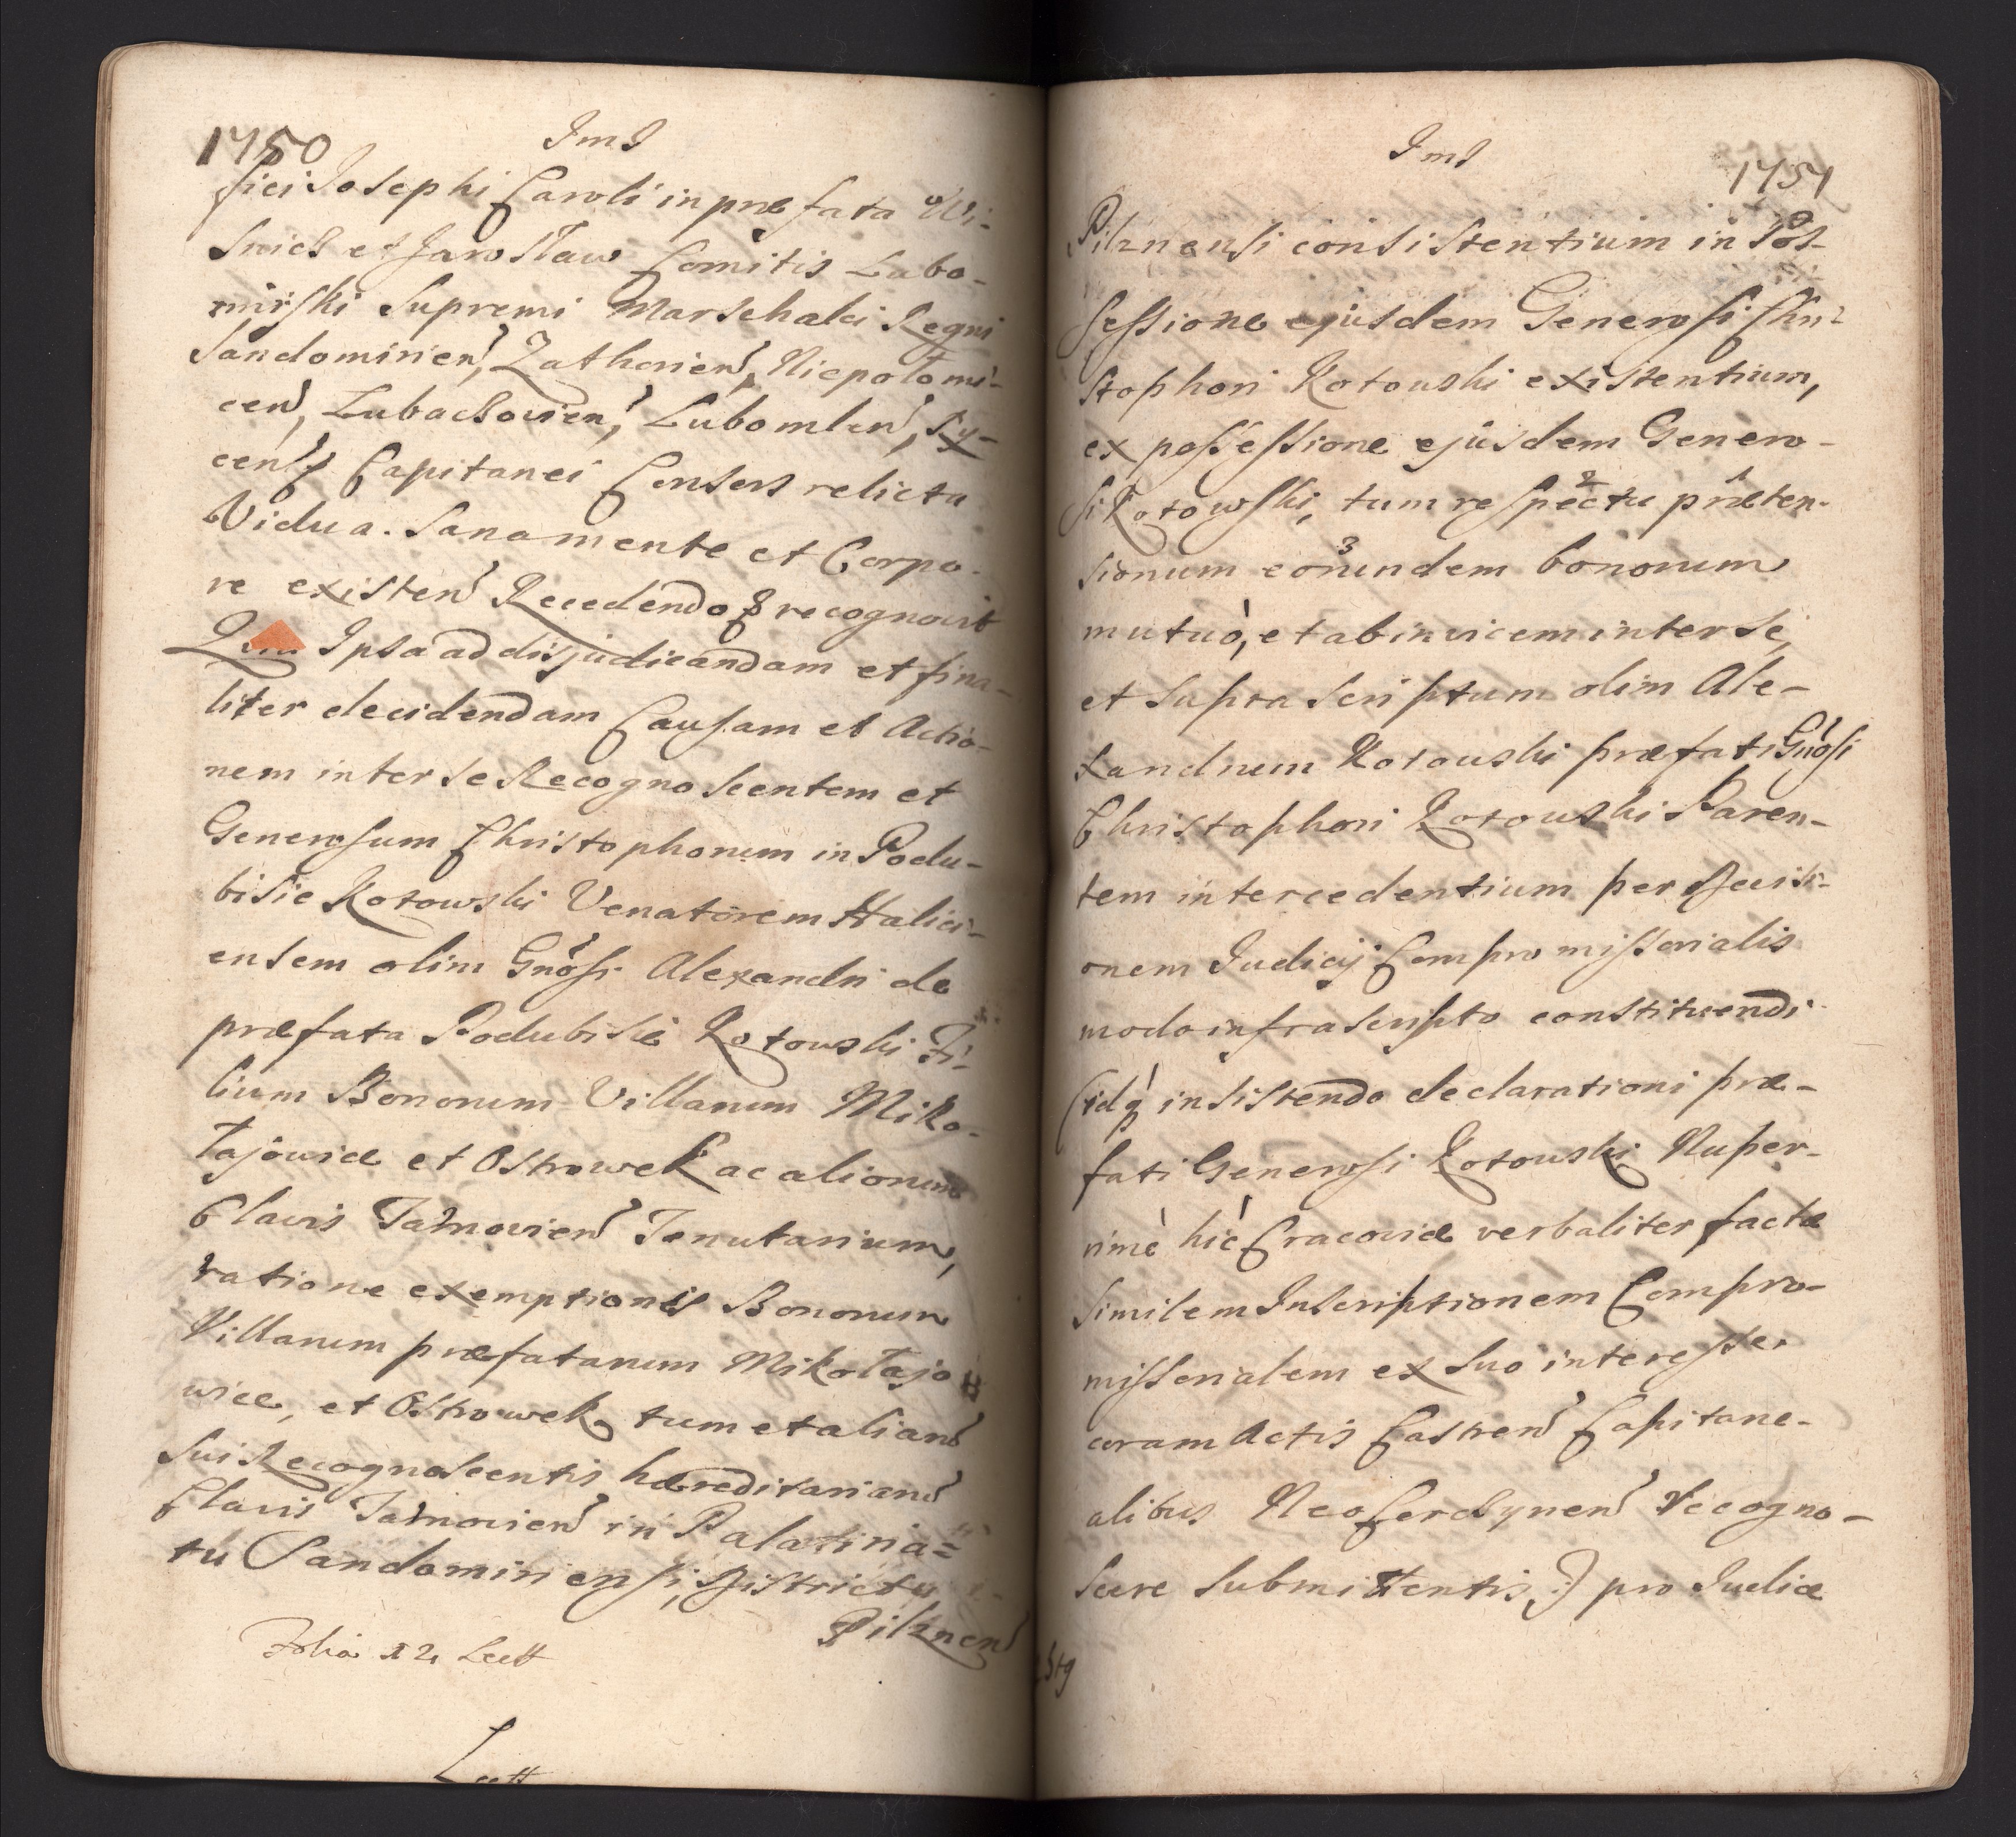 1750
Ims
fici Josephi Caroli in præfata Wi-
snicz et Jarosław Comitis Lubo-
mirski Supremi Marschalci Regni
Sandomirien, Zathorien, Niepołomi-
cen, Lubaczovien, Lubomlen, Ry-
cen q Capitanei Consors relicta
Vidua. Sana mente et Corpo-
re existen Recedendo q recognovit
Ipsa ad disjudicandam et fina-
liter decidendam Causam et Actio-
nem inter se Recognoscentem et
Generosum Christophorum in Podu-
bisie Kotowski Venatorem Halici-
ensem olim Gnosi Alexandri de
præfata Podubisie Kotowski Fi-
lium Bonorum Villarum Miko-
łajowice et Ostrowek ac aliorum
Clavis Tarnovien Tenutarium,
ratione exemptionis Bonorum
Villarum præfatarum Mikołajo
wice, et Ostrowek tum et aliarū
sui Recognoscentis hæreditariarū
Clavis Tarnovien in Palatina=
tu Sandomiriensi, Districtu
Pilznen
Folia 12 Lectt
Lectt
Ims
1751
Pilznensi consistentium in Pos-
sessione ejusdem Generosi Chri-
stophori Kotowski existentium,
ex possessione ejusdem Genero-
si Kotowski, tum respectu præten-
sionum eorundem bonorum
mutuò, et ab invicem inter se,
et supra scriptum olim Ale-
xandrum Kotowski præfati Gnosi
Christophori Kotowski Paren-
tem intercedentium per Decisi-
onem Judicij Compromissorialis
modo infrascripto constituendi
(idq insistendo declarationi præ-
fati Generosi Kotowski Nuper-
rimè hìc Cracoviæ verbaliter factæ
similem Inscriptionem Compro-
missorialem ex suo interesse
coram Actis Castren Capitane-
alibus NeoCorczynen recogno-
scere submittentis,) pro Judice